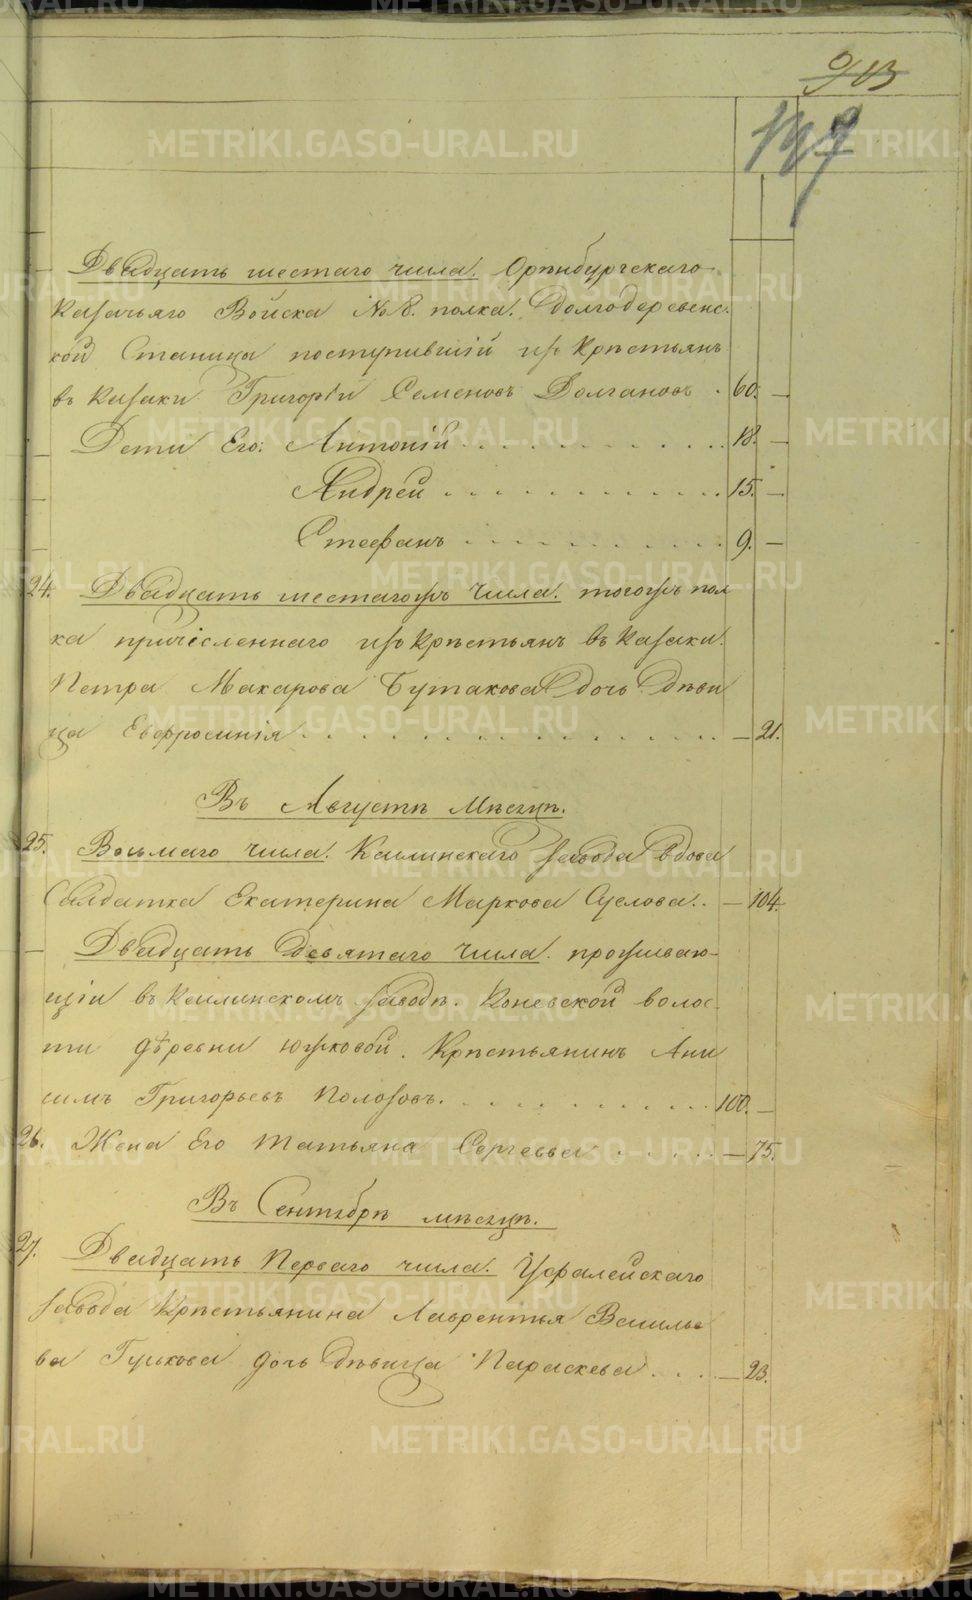 913
Двадцать шестаго числа. Оренбургскаго
казачьяго Войска № 8. полка. Долгодеревенс.
кой Станицы поступившій изъ Крѣстьянъ
въ казаки Григорій Семеновъ Долгановъ . 60. —
— Дети Его: Антоній . . . . . . . . . . . 18. —
— Андрей . . . . . . . . . . . 15. —
— Стефанъ . . . . . . . . . . 9. —
24. Двадцать шестагожъ Числа. тогожъ пол
ка причісленнаго изъ Крѣстьянъ въ казаки.
Петра Макарова Бутакова дочь Дѣви
ца Евфросинія . . . . . . . . . . . . . . — 21.
Въ Августѣ мѣсяцѣ.
25. Восьмаго числа. Каслинскаго завода вдова
Салдатка Екатерина Маркова . . — 104.
— Двадцать девятаго Числа. проживаю-
щіи въ Каслинскомъ заводѣ. Коневской волос-
ти дѣревни Южковой. Крѣстьянинъ Ани
симъ Григорьевъ Полозовъ. . . . . . . . . . . 100. —
26. Жена Его Татьяна Сергеева . . . . . . — 75.
Въ Сентябрѣ мѣсяцѣ.
27. Двадцать Перваго числа. Уфалейскаго
завода Крѣстьянина Лаврентья Василье
ва Гуськова дочь Дѣвица Параскева . . . . — 23.
METRIKI.GASO-URAL.RU